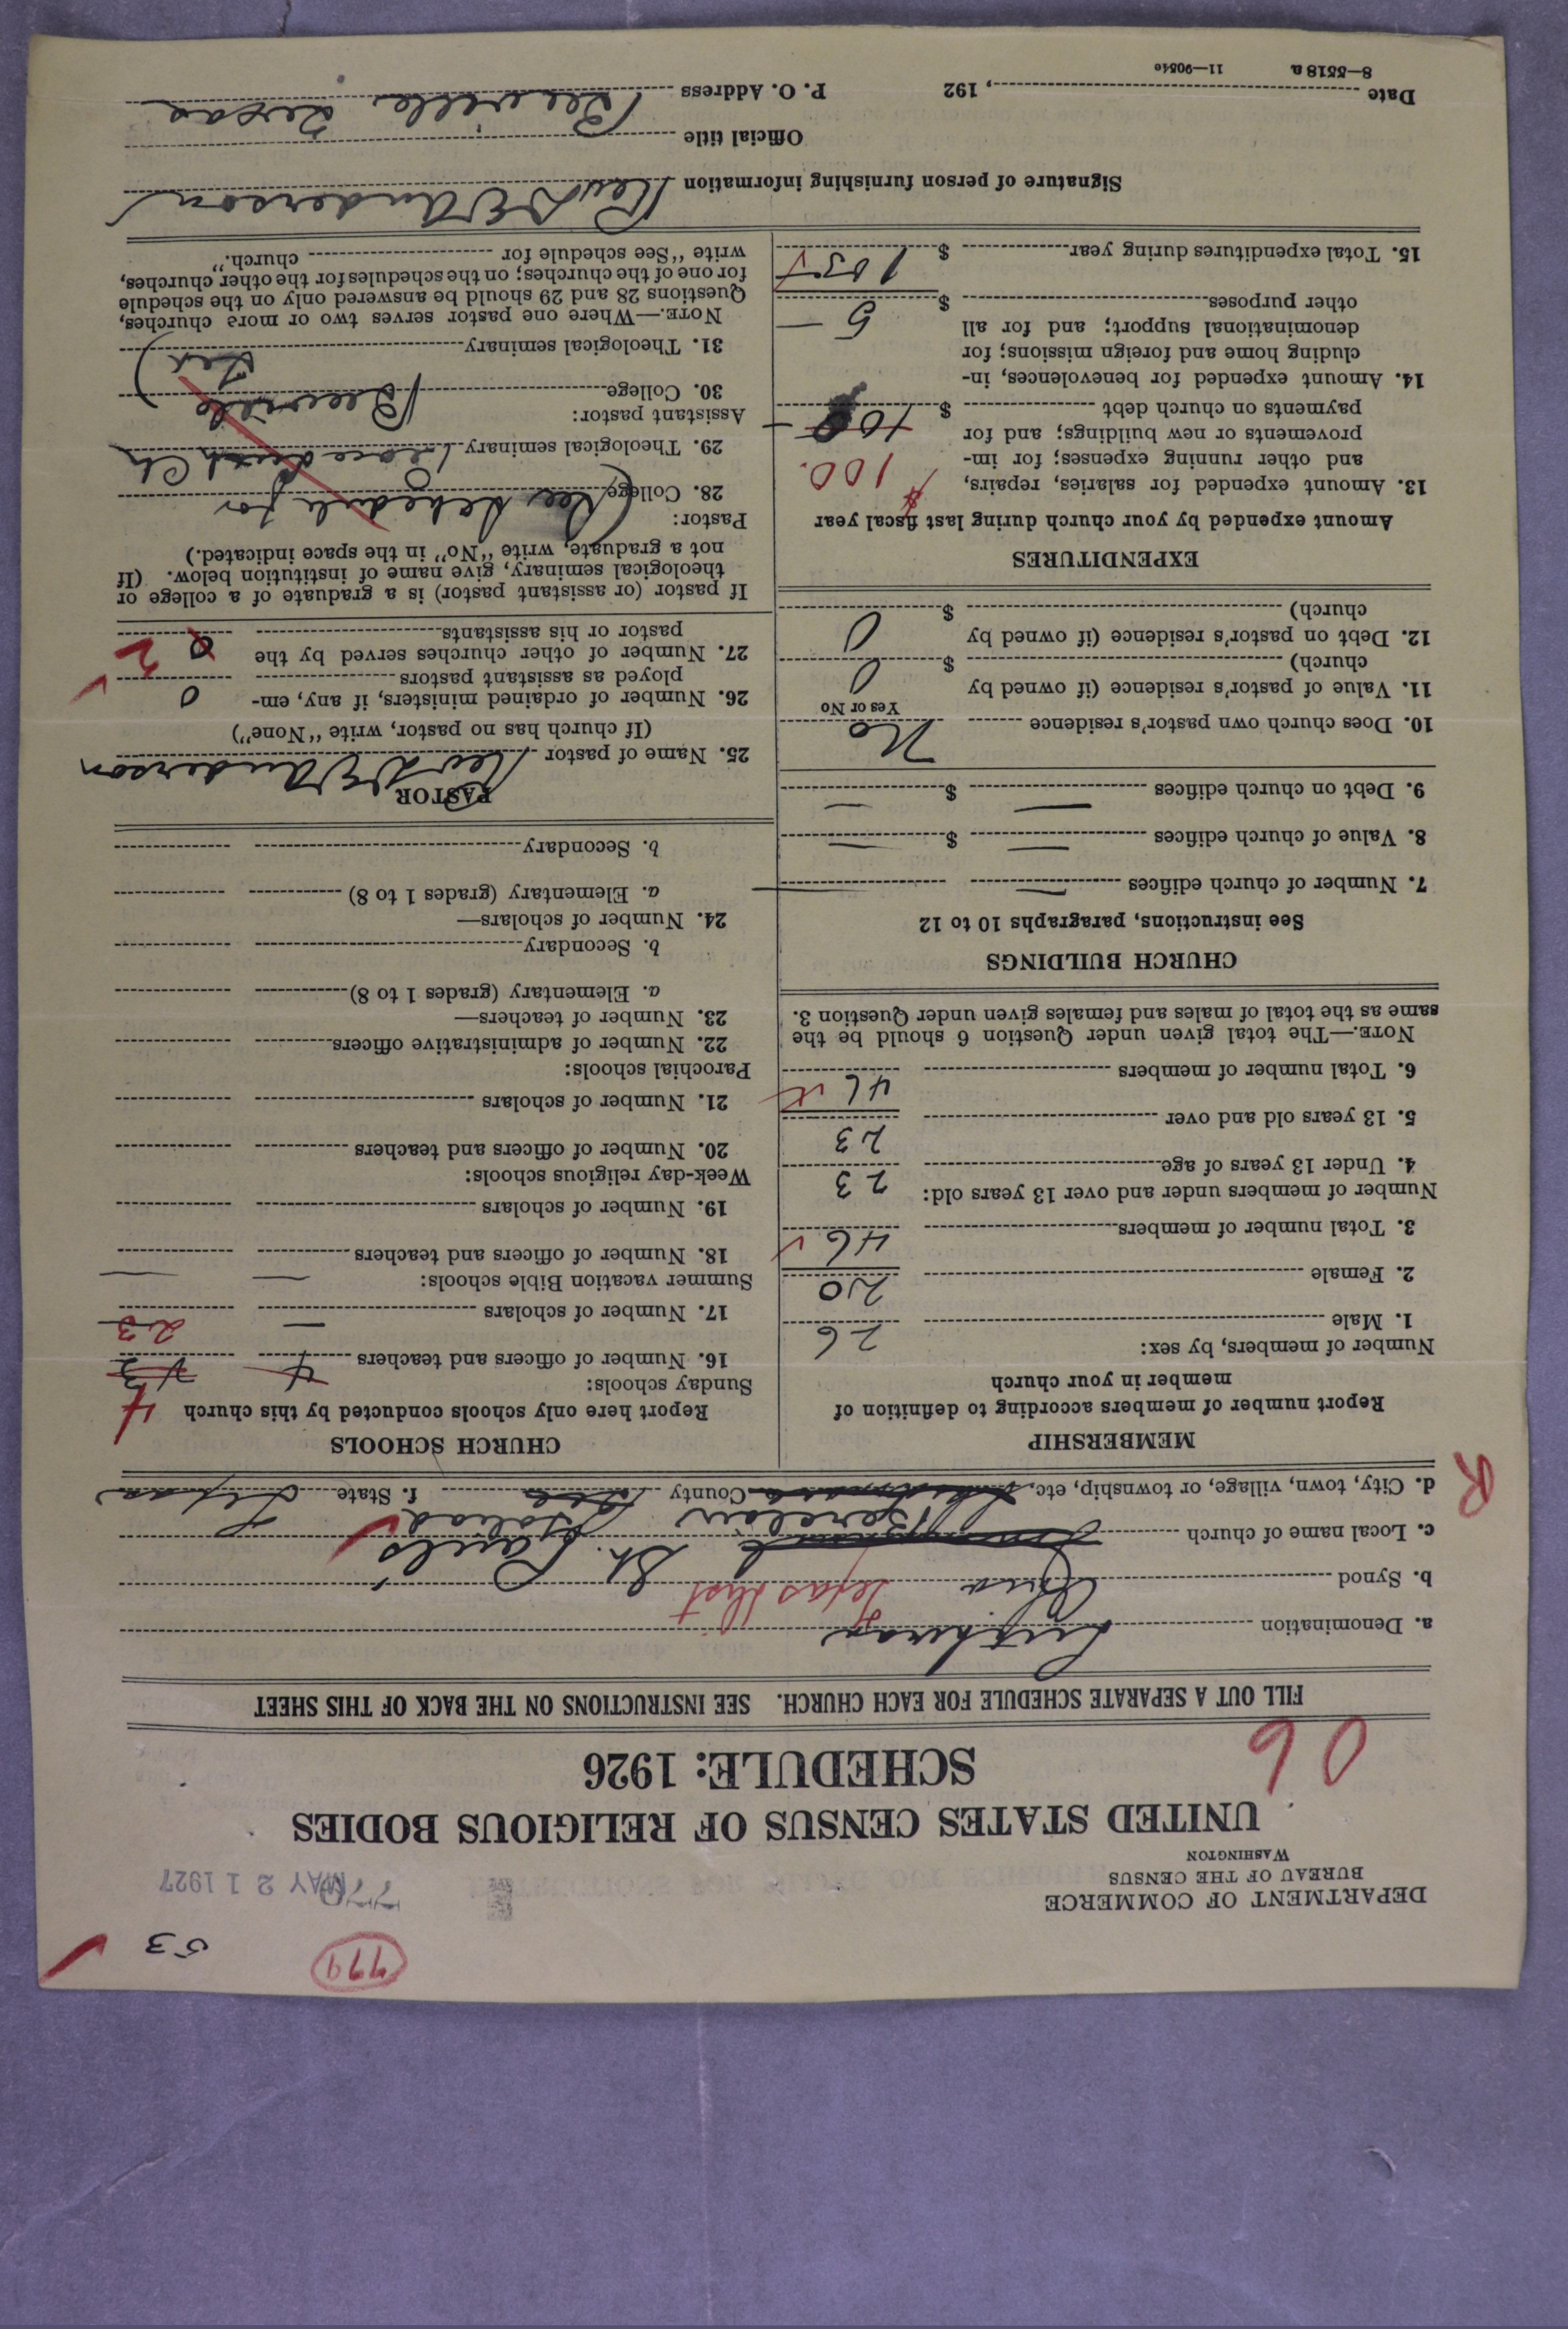 779 53
DEPARTMENT OF COMMERCE
BUREAU OF THE CENSUS
WASHINGTON
MAY 21 1927
UNITED STATES CENSUS OF RELIGIOUS BODIES
06
SCHEDULE: 1926
FILL OUT A SEPARATE SCHEDULE FOR EACH CHURCH. SEE INSTRUCTIONS ON THE BACK OF THIS SHEET
a. Denomination Lutheran
b. Synod Texas Dist
c. Local name of church St. Pauls
d. City, town, village, or township, etc. Berclair County Goliad f. State Texas
R
MEMBERSHIP
Report number of members according to definition of
member in your church
Number of members, by sex:
1. Male 26
2. Female 20
3. Total number of members 46
Number of members under and over 13 years old:
4. Under 13 years of age 23
5. 13 years old and over 23
6. Total number of members 46
NOTE.—The total given under Question 6 should be the
same as the total of males and females given under Question 3.
CHURCH BUILDINGS
See instructions, paragraphs 10 to 12
7. Number of church edifices —
8. Value of church edifices $ —
9. Debt on church edifices $ —
10. Does church own pastor's residence No
Yes or No
11. Value of pastor's residence (if owned by
church) $ 0
12. Debt on pastor's residence (if owned by
church) $ 0
EXPENDITURES
Amount expended by your church during last fiscal year
13. Amount expended for salaries, repairs,
and other running expenses; for im-
provements or new buildings; and for
payments on church debt $ 100.
100
14. Amount expended for benevolences, in-
cluding home and foreign missions; for
denominational support; and for all
other purposes $ 5 —
15. Total expenditures during year $ 105
CHURCH SCHOOLS
Report here only schools conducted by this church
Sunday schools:
16. Number of officers and teachers 4 4
17. Number of scholars — 23
Summer vacation Bible schools:
18. Number of officers and teachers
19. Number of scholars
Week-day religious schools:
20. Number of officers and teachers
21. Number of scholars
Parochial schools:
22. Number of administrative officers
23. Number of teachers—
a. Elementary (grades 1 to 8)
b. Secondary
24. Number of scholars—
a. Elementary (grades 1 to 8)
b. Secondary
PASTOR
25. Name of pastor Rev Anderson
(If church has no pastor, write "None")
26. Number of ordained ministers, if any, em-
ployed as assistant pastors 0
27. Number of other churches served by the
pastor or his assistants 2
If pastor (or assistant pastor) is a graduate of a college or
theological seminary, give name of institution below. (If
not a graduate, write "No" in the space indicated.)
Pastor:
28. College (See schedule for
29. Theological seminary Luth Ch
Assistant pastor:
30. College Beeville
31. Theological seminary Tex)
NOTE.—Where one pastor serves two or more churches,
Questions 28 and 29 should be answered only on the schedule
for one of the churches; on the schedules for the other churches,
write "See schedule for church."
Signature of person furnishing information Rev Anderson
Official title
Date , 192 P. O. Address Beeville Texas
8—5518 a 11—9054c